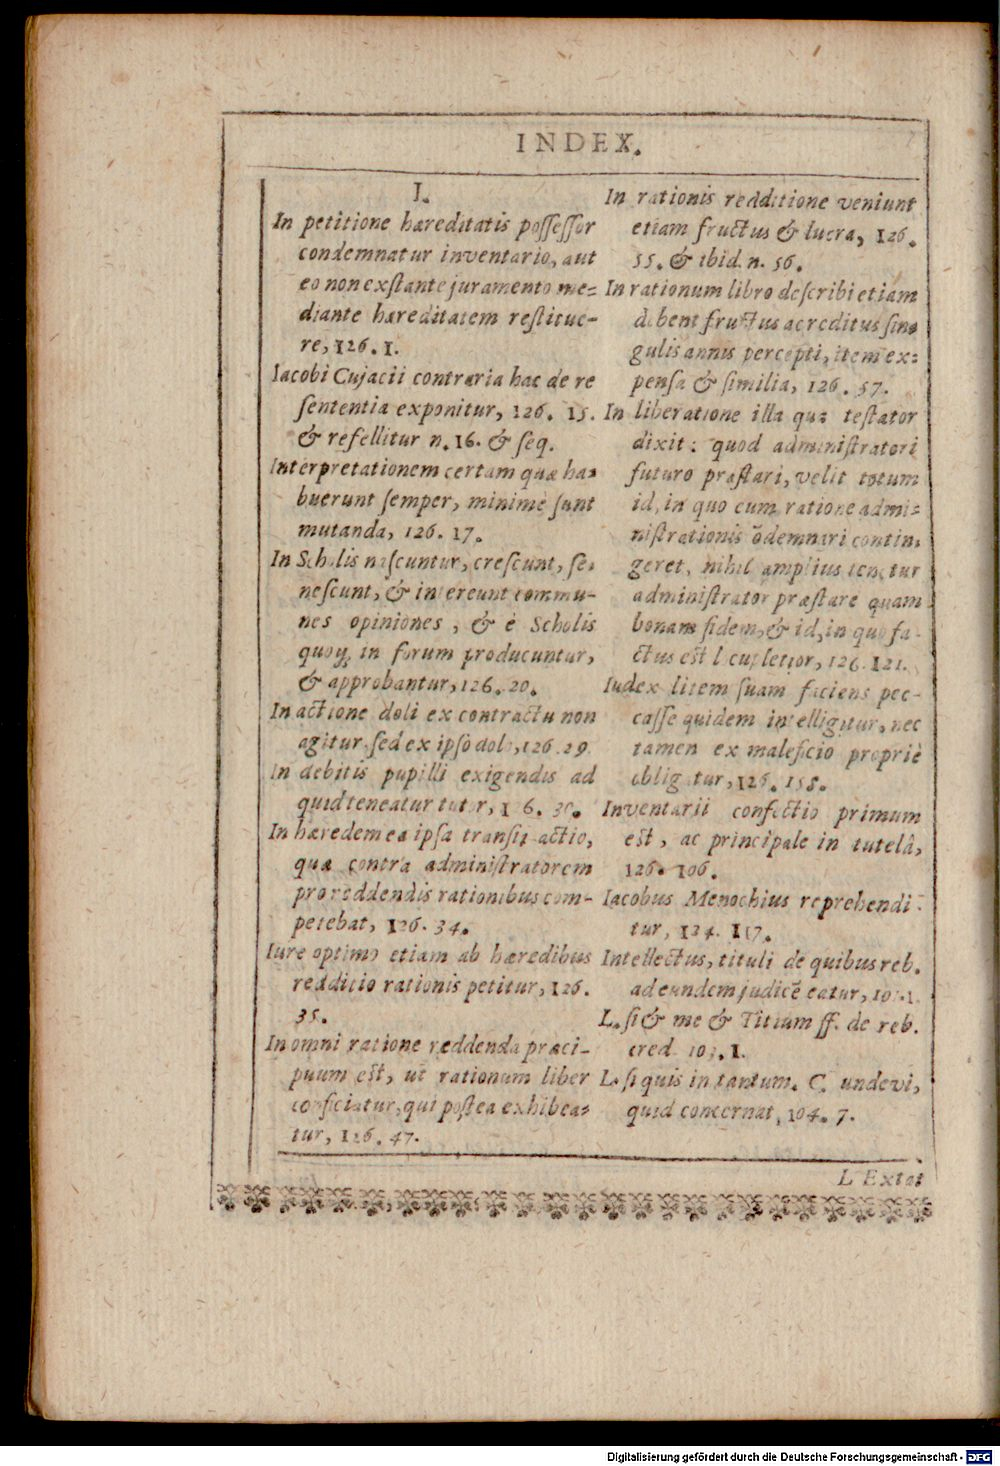 INDEX.
I.
In petitione hæreditatis poſſeſſor
condemnatur inventario, aut
eo non exſtante juramento me=
diante hæreditatem reſtitue-
re, 126. 1.
Iacobi Cujacii contraria hac de re
ſententia exponitur, 126. 15.
& refellitur n. 16. & ſeq.
Interpretationem certam quæ ha=
buerunt ſemper, minimè ſunt
mutanda, 126. 17.
In Scholis naſcuntur, creſcunt, ſe=
neſcunt, & intereunt commu-
nes opiniones, & è Scholis
quoq; in forum producuntur,
& approbantur, 126. 20.
In actione doli ex contractu non
agitur, ſed ex ipſo dolo, 126. 29.
In debitis pupilli exigendis ad
quid teneatur tutor, 126. 30.
In hæredem ea ipſa tranſit actio,
quæ contra adminiſtratorem
pro reddendis rationibus com-
petebat, 126. 34.
Iure optimo etiam ab hæredibus
redditio rationis petitur, 126.
35.
In omni ratione reddenda præci-
puum eſt, ut rationum liber
conficiatur, qui poſtea exhibea=
tur, 126. 47.
In rationis redditione veniunt
etiam fructus & lucra, 126.
55. & ibid. n. 56.
In rationum libro deſcribi etiam
debent fructus ac reditus ſin=
gulis annis percepti, item ex=
penſa & ſimilia, 126. 57.
In liberatione illa qua teſtator
dixit: quod adminiſtratori
futuro præſtari, velit totum
id, in quo cum ratione admi=
niſtrationis cõdemnari contin=
geret, nihil amplius tenetur
adminiſtrator præſtare quam
bonam fidem, & id, in quo fa-
ctus eſt locupletior, 126. 121.
Iudex litem ſuam faciens pec-
caſſe quidem intelligitur, nec
tamen ex maleficio propriè
obligatur, 126. 158.
Inventarii confectio primum
eſt, ac principale in tutelâ,
126. 106.
Iacobus Menochius reprehendi-
tur, 124. 117.
Intellectus, tituli de quibus reb.
ad eundem judicē eatur, 103. 1.
L. ſi & me & Titium ff. de reb.
cred. 103. 1.
L. ſi quis in tantum. C. unde vi,
quid concernat, 104. 7.
L Extat
Digitalisierung gefördert durch die Deutsche Forschungsgemeinschaft - DFG